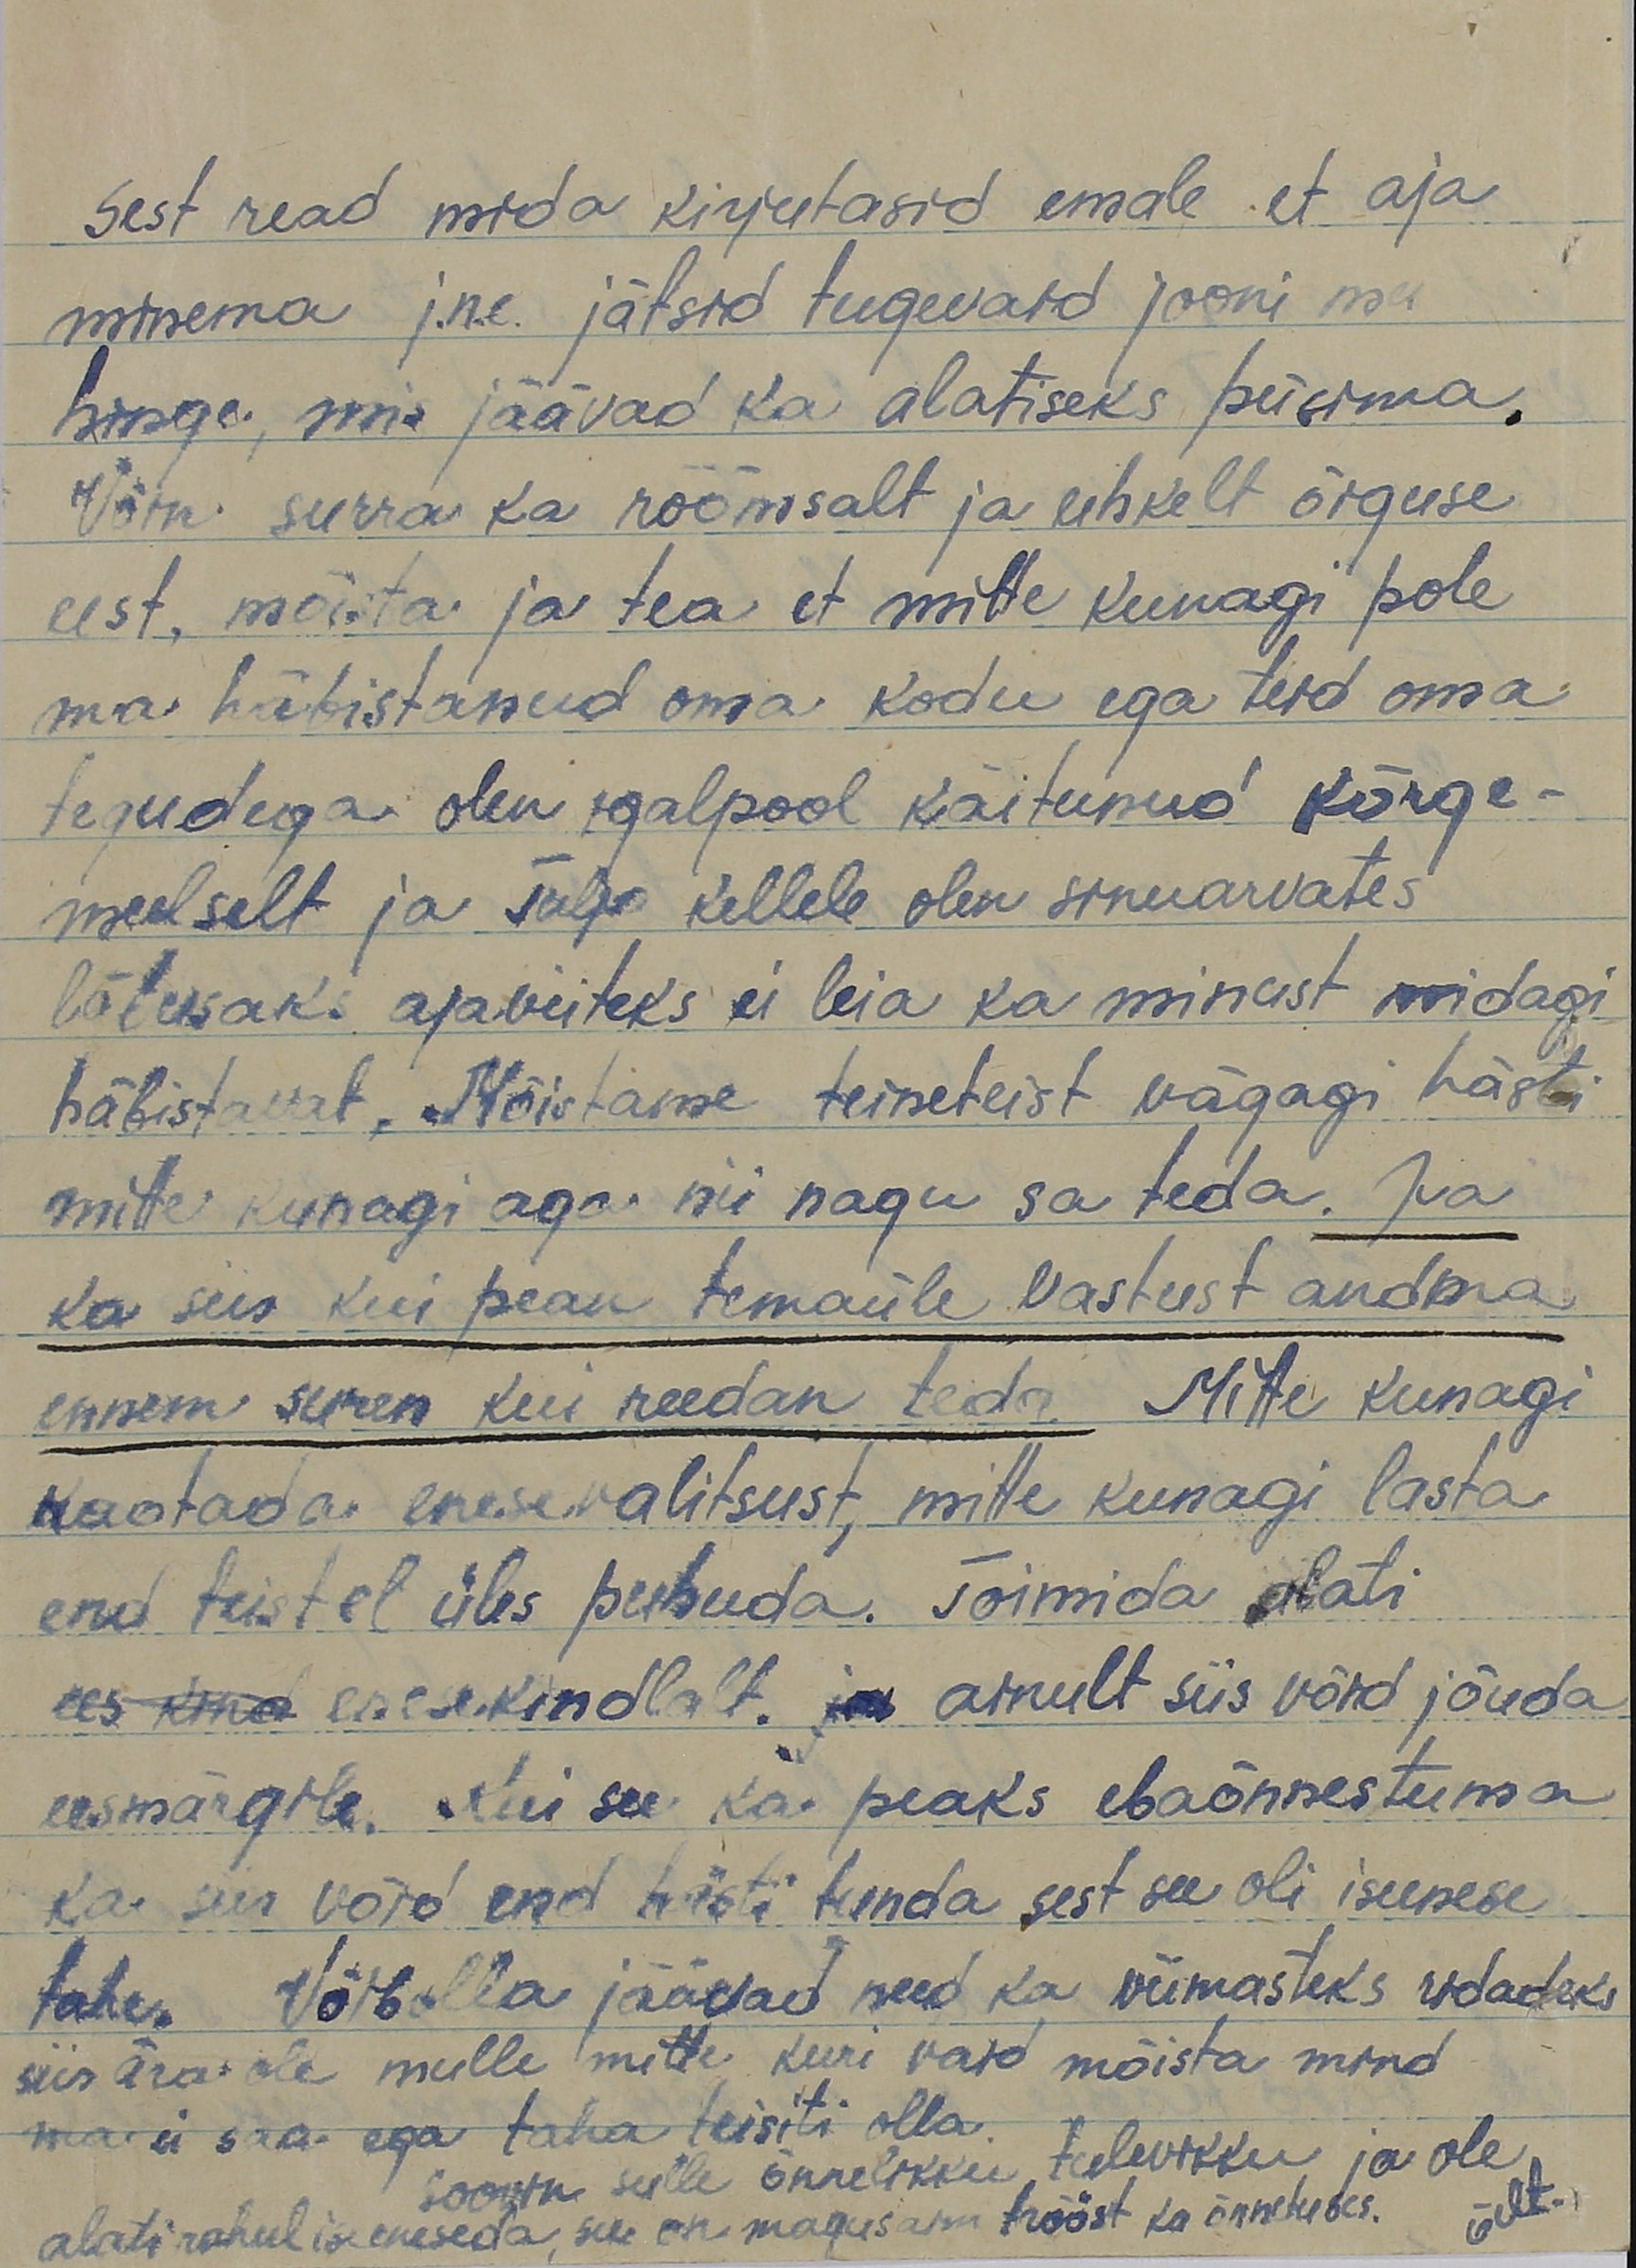 Sest read mida kirjutasid emale et aja
minema j.n.e. jätsid tugevaid jooni mu
hinge, mis jäävad ka alatiseks püsima.
Võin surra ka rõõmsalt ja uhkelt õiguse
eest, mõista ja tea et mitte kunagi pole
ma häbistanud oma kodu ega teid oma
tegudega olen igalpool käitunud kõrge-
meelselt ja kellele olen sinuarvates
lõbusaks ajaviiteks ei leia ka minust midagi
häbistavat, Mõistame teineteist vägagi hästi
mitte kunagi aga nii nagu sa teda. Ja
ka siis kui pean temaüle vastust andma
ennem suren kui reedan teda Mitte kunagi
kaotada enesevalitsust, mitte kunagi lasta
end teistel üles puhuda. Toimida alati
ees kind enesekindlalt. ja ainult siis võid jõuda
eesmärgile. Kui see ka peaks ebaõnnestuma
ka siis võid end hästi tunda sest see oli iseenese
tahe. Võibolla jäävad need ka viimasteks ridadeks
siis ära ole mulle mitte kuri vaid mõista mind
ma ei saa ega taha teisiti olla.
Soovin sulle õnnelikku tulevikku ja ole
alati rahul iseeneseda, see on magusaim trööst ka õnnetuses.